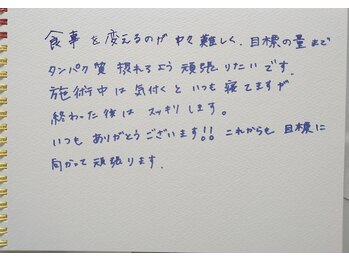 食事を変えるのが中々難しく、目標の量まで
タンパク質摂れるよう頑張りたいです。
施術中は気付くといつも寝てますが
終わった後はスッキリします。
いつもありがとうございます!! これからも目標に
向かって頑張ります.